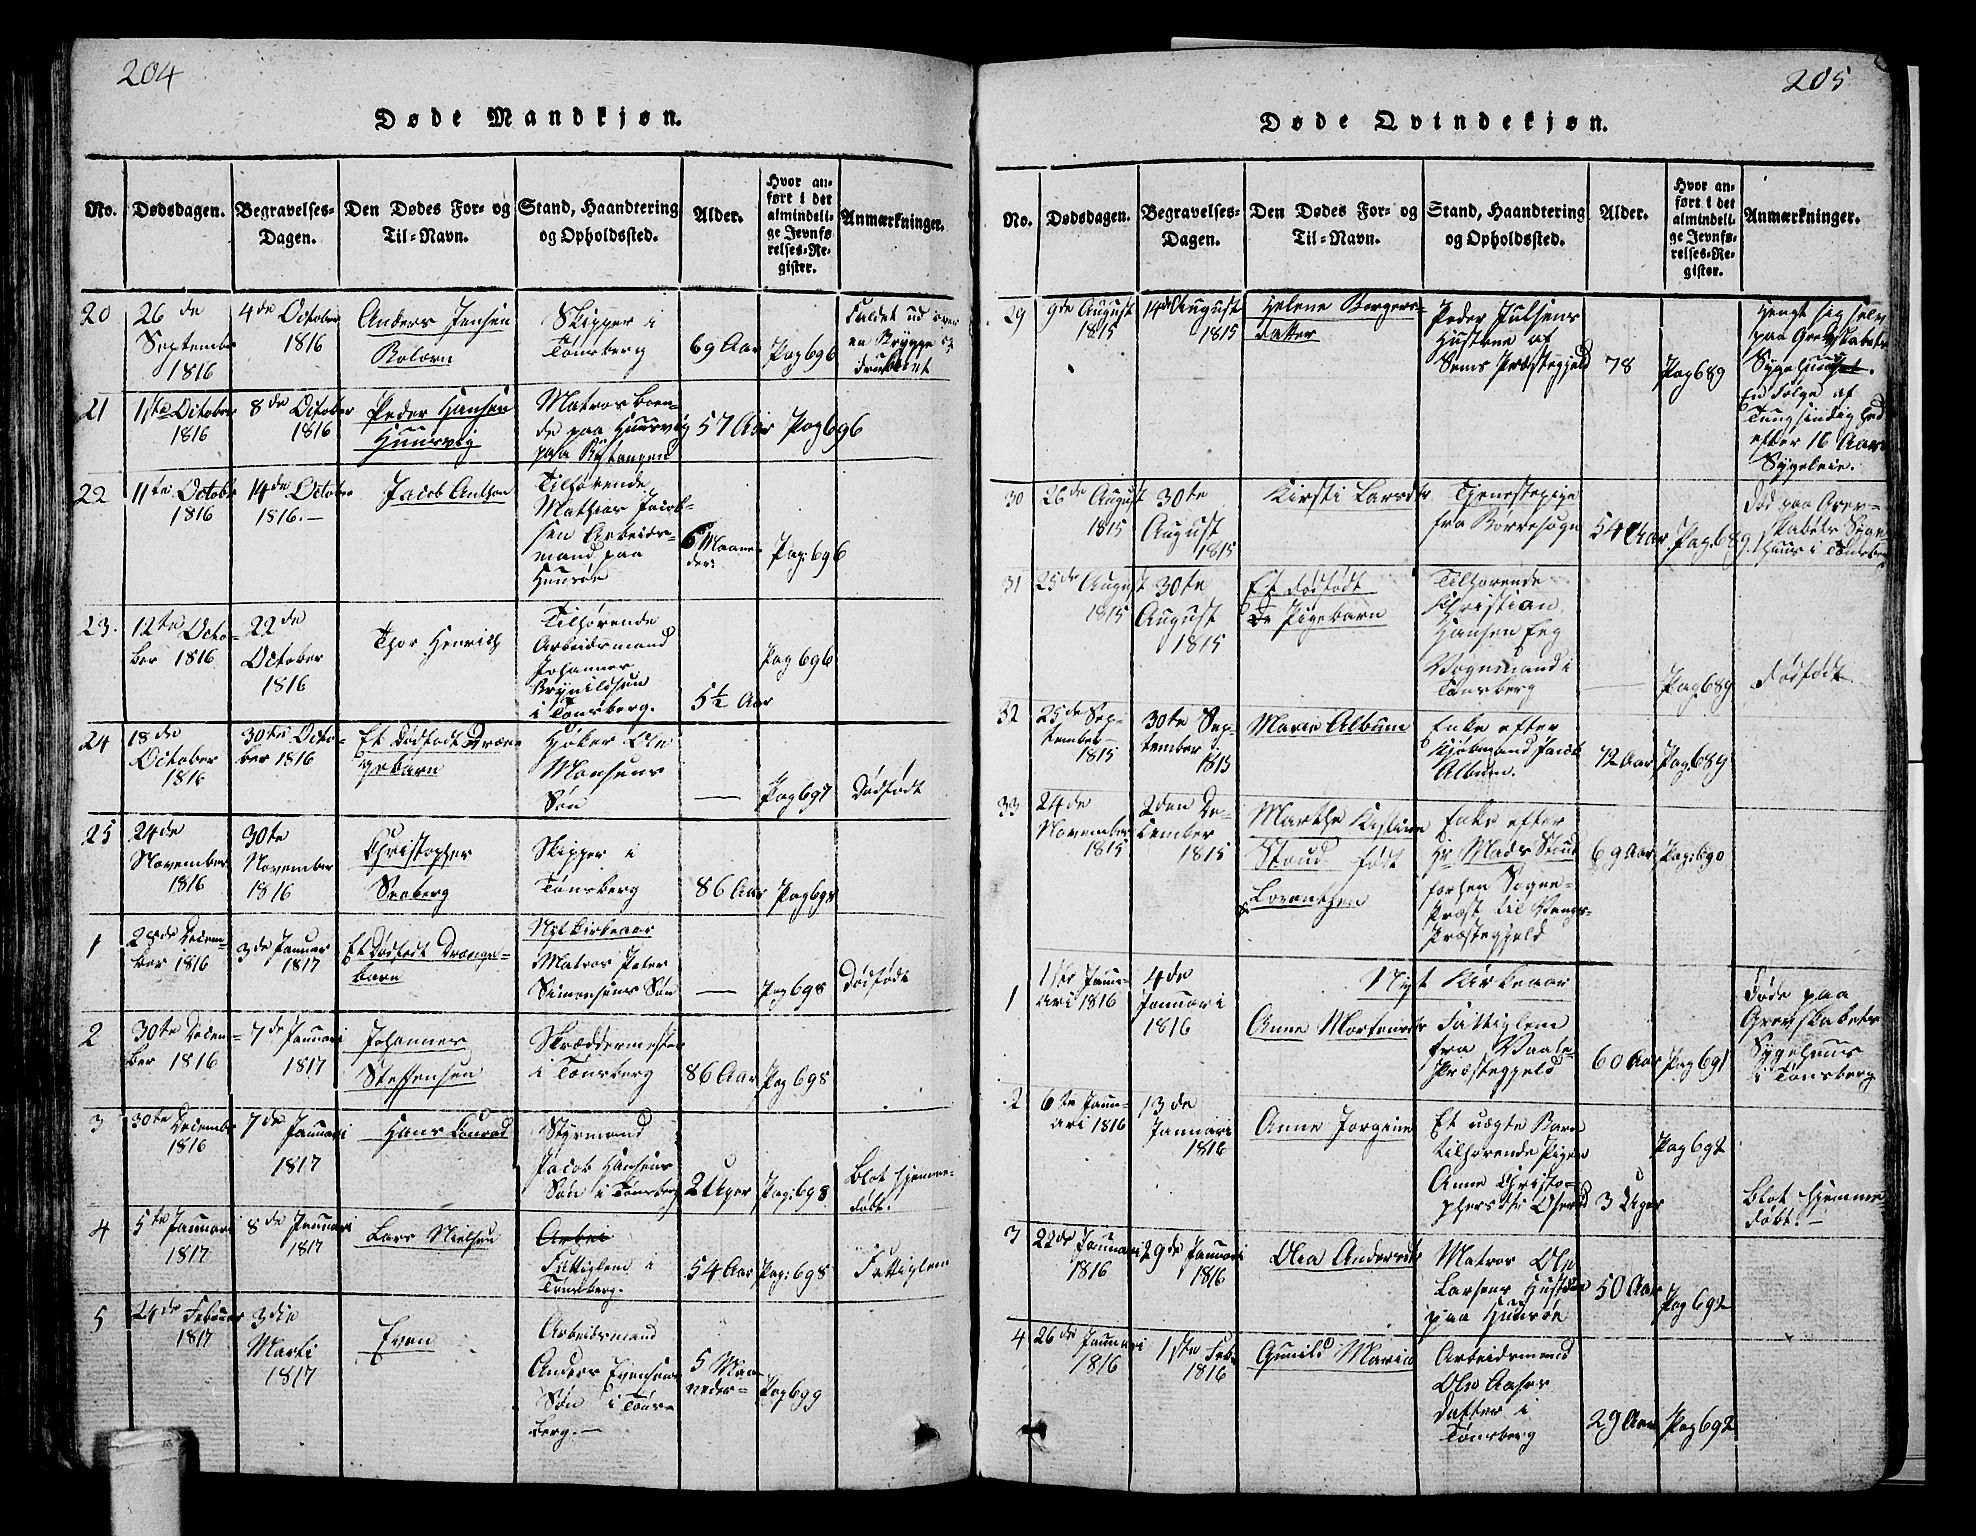 204
Døde Mandkjøn.
No.
Dødsdagen.
Begravelses-
Dagen.
Den Dødes For- og
Til-Navn.
Stand, Haandtering
og Opholdssted.
Alder.
Hvor an-
ført i det
almindeli-
ge Jevnfø-
relses-Re-
gister.
Anmærkninger.
20
26de
September
1816
4de October
1816
Anders Jensen
Skipper i
Tønsberg
69 Aar
Pag 696
Faldet ud over
en Brygge og
druknet
21
11te October
1816
8de October
1816
Peder Hansen
Huusvig
Matros boen-
de paa Huusvig
paa
57 Aar
Pag 696
22
11te October
1816
14de October
1816.-
Jacob Anthon
Tilhørende
Mathias Jacob-
sen Arbeids-
mand paa
Huusøe
6 Maane-
der.
Pag: 696
23.
12te Octo-
ber 1816
22de
October
1816
Thor Henrich
Tilhørende
Arbeidsmand
Johannes
Brynildsen
i Tønsberg.
5½ Aar
Pag 696
24
18de
October
1816
30te Octo-
ber 1816
Et Dødfødt Dræn-
gebarn
Høker Ole
Monsens
Søn
—
Pag 697
Dødfødt
25
24de
November
1816
30te
November
1816
Christopher
Seeberg
Skipper i
Tønsberg
86 Aar
Pag 698
Nyt Kirkeaar
1
28de Decem-
ber 1816
3de Januar
1817
Et Dødfødt Drænge-
barn
Matros Peter
Simonsens Søn
—
Pag 698
Dødfødt
2
30te Decem-
ber 1816
7de Januari
1817
Johannes
Steffensen
Skræddermester
i Tønsberg
86 Aar
Pag 698
3
30te Decembr
1816
7de Januari
1817
Hans Conrad
Styrmand
Jacob Hansens
Søn i Tønsberg
2 Uger
Pag: 698
Blot hjemme-
døbt.
4
5te Januari
1817
8de Januari
1817
Lars Nielsen
Arbei
Fattiglem i
Tønsberg.
54 Aar
Pag: 698
Fattiglem
5
24de Februar
1817
3die
Marti
1817
Even
Arbeidsmand
Anders Evensens
Søn i Tøns-
berg.—
5 Maa-
neder-
Pag 699
205
Døde Qvindekjøn.
No.
Dødsdagen.
Begravelses-
Dagen.
Den Dødes For- og
Til-Navn.
Stand, Haandtering
og Opholdssted.
Alder.
Hvor an-
ført i det
almindeli-
ge Jevnfø-
relses-Re-
gister.
Anmærkninger.
29
9de August
1815
14de August
1815
Helene Borgers-
datter
Peder Julsens
Hustrue af
Sems Præstegjeld
78
Pag 689
Hengt sig selv
paa Grevskabets
Sygehuuset.
En Følge af
Tungsindighed
efter 16 Aars
Sygeleie.
30
26de August
1815
30te
August
1815
Kirsti Larsdtr
Tjenestepige
fra Borresogn
54 Aar
Pag. 689.
Død paa Grev-
skabets Syge
huus i
31
25de August
1815
30te
August
1815
Et dødfødt
Pigebarn
Tilhørende
Christian
Hansen Eeg
Vognmand i
Tønsberg
—
Pag 689
Dødfødt
32
25de Sep-
tember
1815
30te Sep-
tember
1815
Maria Album
Enke efter
Kjøbmand Jacob
Album.
72 Aar
Pag. 689
33
24de
November
1815
2den De-
cember
1815
Marthe Kistine
Stoud født
Lorentzen
Enke efter
Hr Mads Stoud
forhen Sogne-
Præst til Vangs-
Præstegjeld
69 Aar
Pag: 690
Nyt Kirkeaar
1
1ste Janu-
ari 1816
4de
Januari
1816
Anne Mortensdtr
Fattiglem
fra Vaale-
Præstegjeld
60 Aar
Pag 691
Døde paa
Grevskabets
Sygehuus
i Tønsberg
2
6te Janu-
ari 1816
13de
Januari
1816
Anne Jorgine
Et uægte Barn
tilhørende Pigen
Anne Christo-
phersdtr
3 Uger
Pag 692
Blot hjemme-
døbt.—
3
22de Januari
1816
29de Januari
1816
Olea Andersdtr
Matros Ole
Larsens Hustrue
paa Huusøe
50 Aar
Pag 692
4
26de Januari
1816
1ste Feb.
1816
Gunild Maria
Arbeidsmand
Ole Aases
datter i
Tønsberg
29 Aar
Pag 692